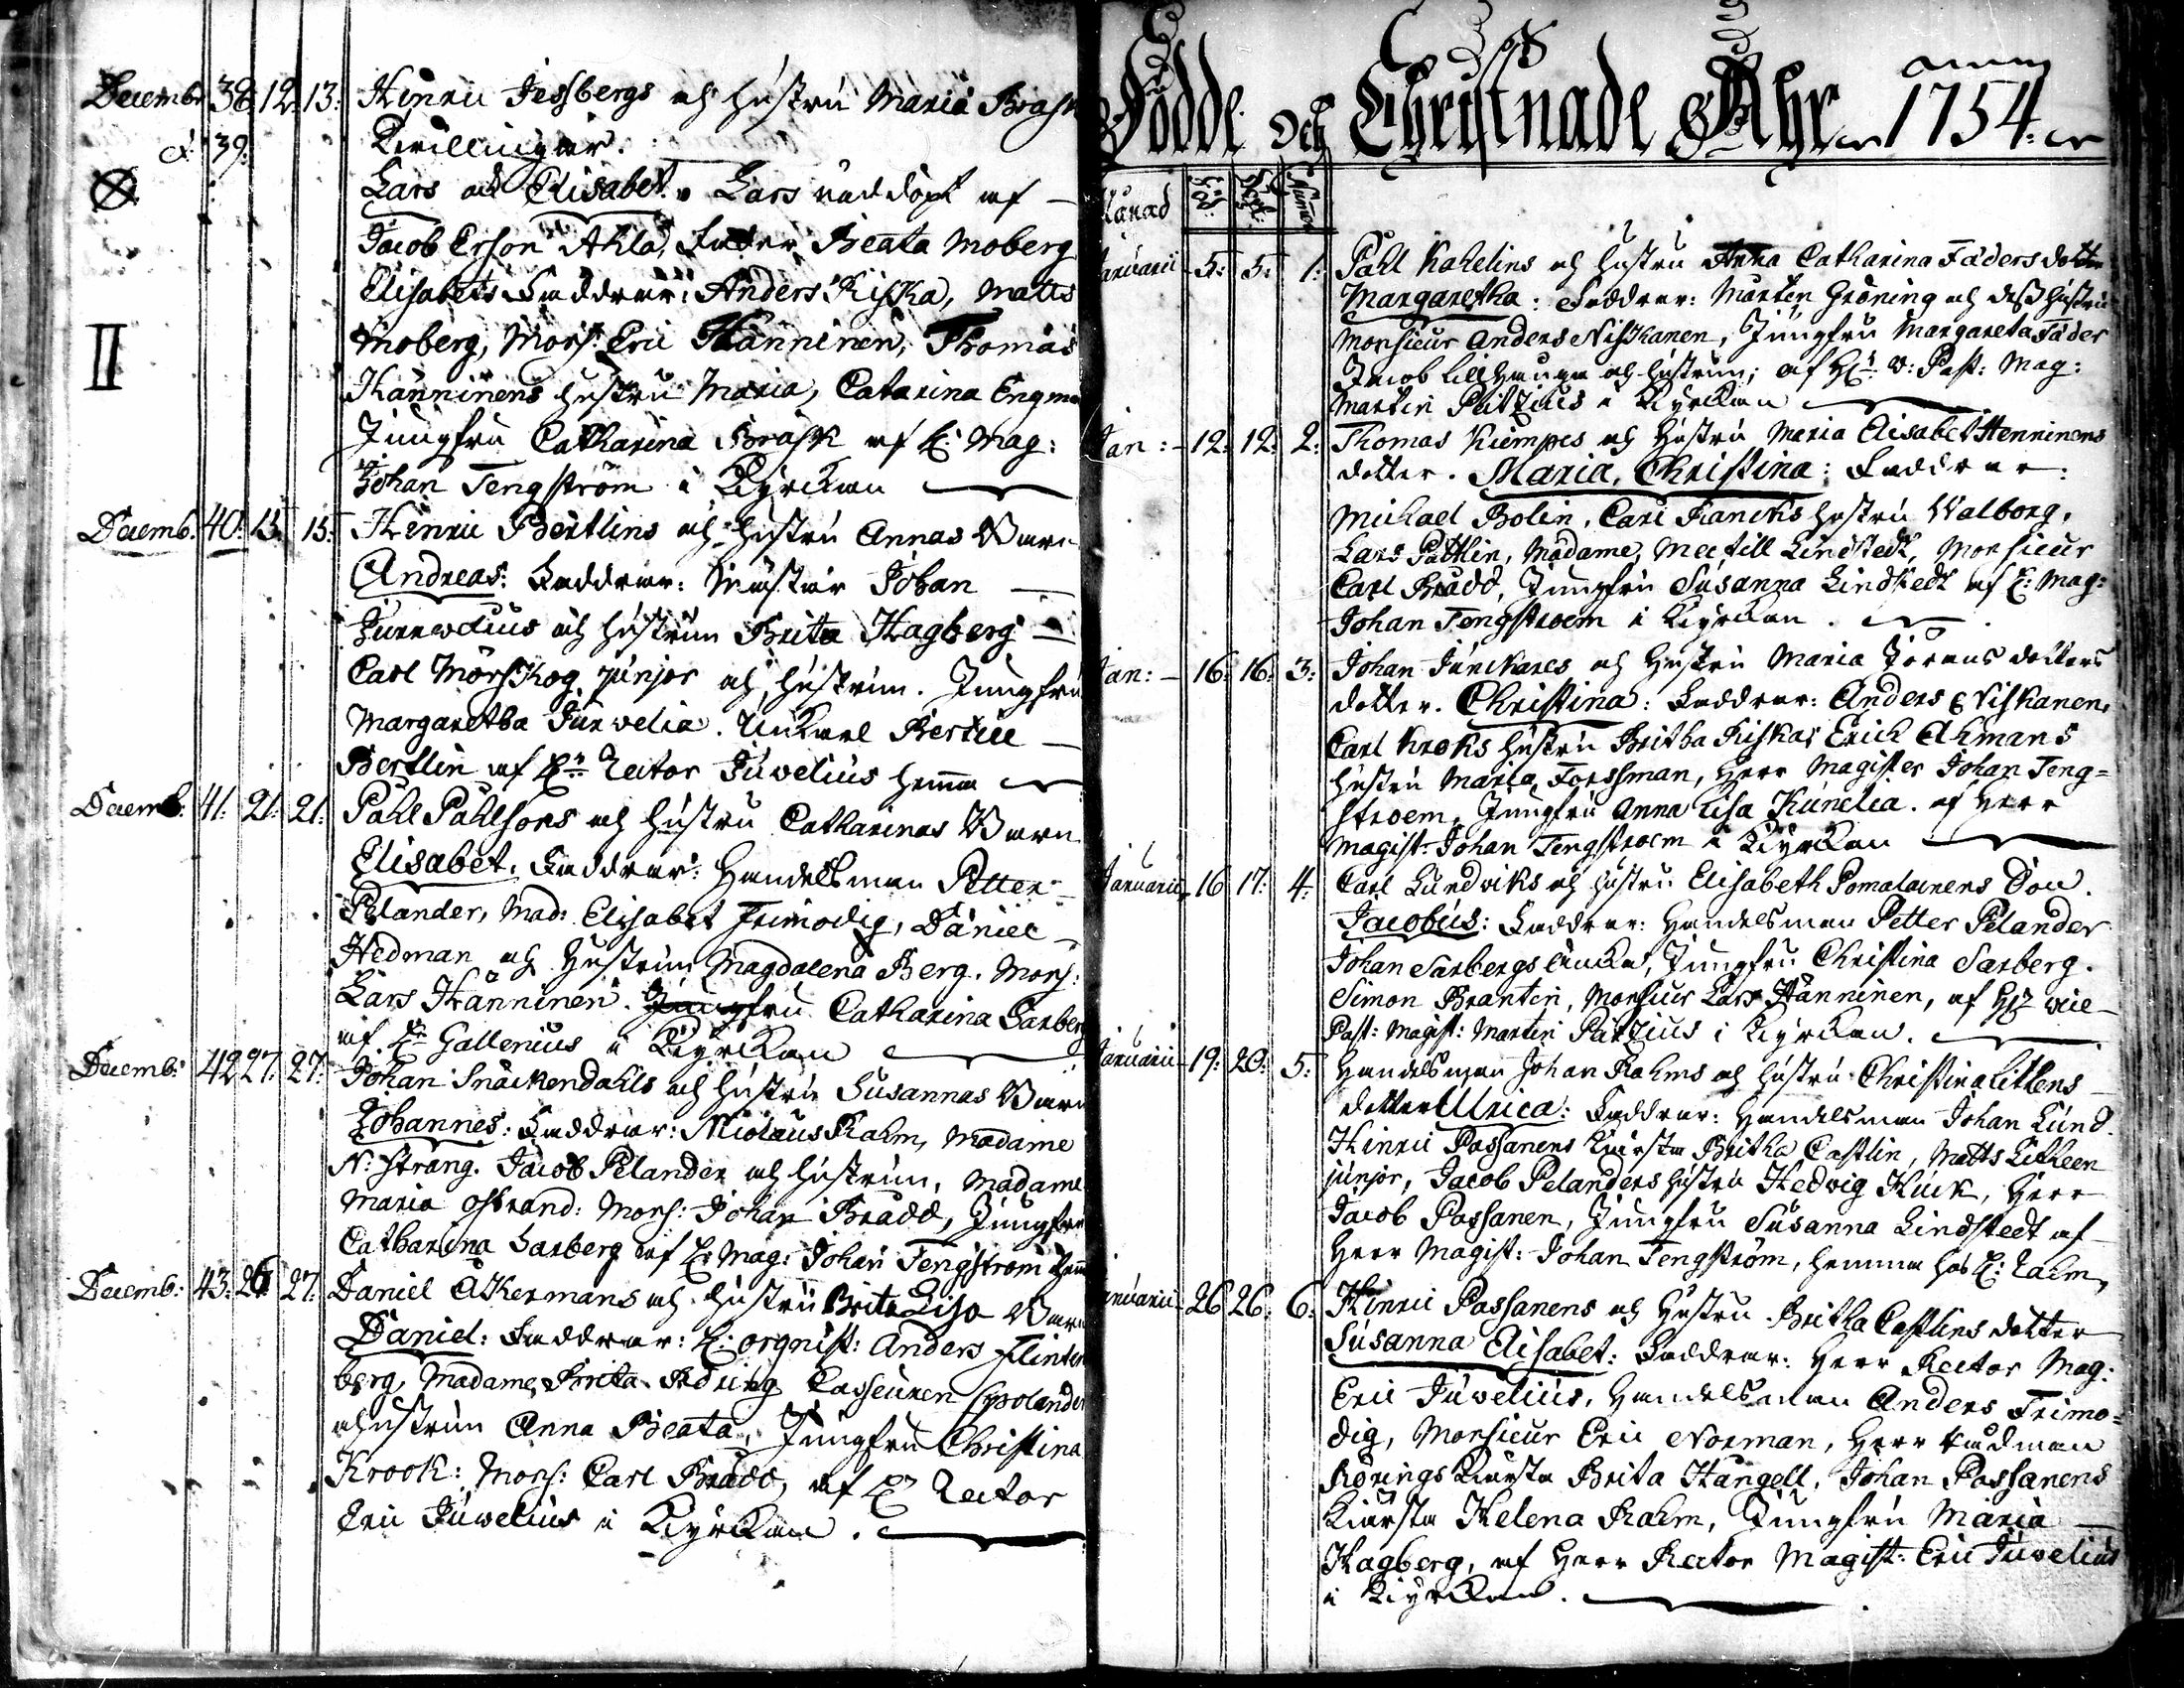 Decembr 38: 12: 13: Henric Jessbergs och hustru Maria Brask
d: 39: Twillingar.
Lars och Elisabet. Lars nöddöpt af
Jacob Erson Ahla, Beata Moberg
Elisabets Faddrar: Anders Kiska, Matts
Moberg, Mons: Eric Hänninen, Thomas
II
Hänninens hustru Maria, Catarina Engman
Jungfru Catharina Brask af H: Mag:
Johan Tengström i Kyrckan
Decemb: 40: 15: 15: Henric Bertlins och hustru Annas Barn
Andreas: Faddrar: Mäster Johan
och hustrun Brita Hagberg
Carl Mörskog junjor och hustrun. Jungfru
Margaretha Juwelia. Bertill
Bertlin af Hr Rector Juwelius hemma
Decemb: 41: 21: 21: Påhl Påhlsons och hustru Catharinas Barn
Elisabet. Faddrar: Handelsman Petter
Pelander, Mad: Elisabet Frimodig, Daniel
Hedman och Hustrun Magdalena Berg. Mons:
Lars Hänninen. Jungfru Catharina Sarberg
af Hr Gallenius i Kyrckan
Decemb: 42 27: 27: Johan Snäckendahls och hustru Susannas Barn
Johannes: Faddrar: Nicolaus Rahm, Madame
N: Strång. Jacob Pelander och hustrun, Madame
Maria Mons: Johan Bradd, Jungfru
Catharina Sarberg af H: Mag: Johan Tengström hemma
Decemb: 43: 26 27: Daniel Åkermans och hustru Brita Lisa Barn
Daniel: Faddrar: H: orgnist: Anders Flinten
berg, Madame Brita Rdring Casseuren Cypolander
hustrun Anna Beata, Jungfru Christina
Krook: Mons: Carl Bradd, af Hr Rector
Eric Juwelius i Kyrckan.
Födde och Christnade Åhr 1754:
anno
Månad Föd: Döpt: Numer
Januarii 5: 5: 1: Påhl Kahelins och hustru Anna Catharina Fäders dotter
Margaretha: Faddrar: Mårten Gröning och dess hustru
Monsieur Anders Niskanen, Jungfru Margareta Fäder
Jacob och hustrun; af Hr v: Past: Mag:
Martin Patzius i Kyrckan
Jan: 12: 12: 2: Thomas Kiempes och Hustru Maria Elisabet Henninens
dotter. Maria, Christina: Faddrar:
Michael Bolin, Carl Rancks hustru Walborg,
Lars Påhlin, Madame, Mectill Lindstedt, Monsieur
Carl Bradd, Jungfru Susanna Lindstedt af H: Mag:
Johan Tengstroem i Kyrckan.
Jan: 16: 16: 3: Johan Junckares och Hustru Maria Jörans dotters
dotter. Christina: Faddrar: Anders Niskanen,
Carl Kroks hustru Britha Kiska, Erich Ahmans
hustru Maria Forssman, Herr Magister Johan Teng=
stroem, Jungfru Anna Lisa Kunelia. af Herr
Magist: Johan Tengstroem i Kyrckan
Januarii 16 17: 4: Carl Lundwiks och hustru Elisabeth Pomalainens Son.
Jacobus: Faddrar: Handelsman Petter Pelander
Johan Sarbergs änka, Jungfru Christina Sarberg.
Simon Brantin, Monsieur Lars Hänninen, af Hr vice
Past: Magist: Martin Patzius i Kyrckan.
Januarii 19: 20: 5: Handelsman Johan Rahms och hustru Christina Lithens
dotter Ulrica: Faddrar: Handelsman Johan Lund.
Hinric Passanens Kiärsta Britha Castlin, Matts Litheen
junjor, Jacob Pelanders hustru Hedvig Huck, Herr
Jacob Passanen, Jungfru Susanna Lindstedt af
Herr Magist: Johan Tengström, hemma hos H: Rahm,
Januarii 26 26: 6: Hinric Passanens och Hustru Britha Castlins dotter
Susanna Elisabet: Faddrar: Herr Rector Mag:
Eric Juwelius, Handelsman Anders Frimo=
dig, Monsieur Eric Norman, Herr Rådman
Rörings Kiärsta Brita Hangell, Johan Passanens
Kiärsta Helena Rahm, Jungfru Maria
Hagberg, af Herr Rector Magist: Eric Juwelius
i Kyrckan.